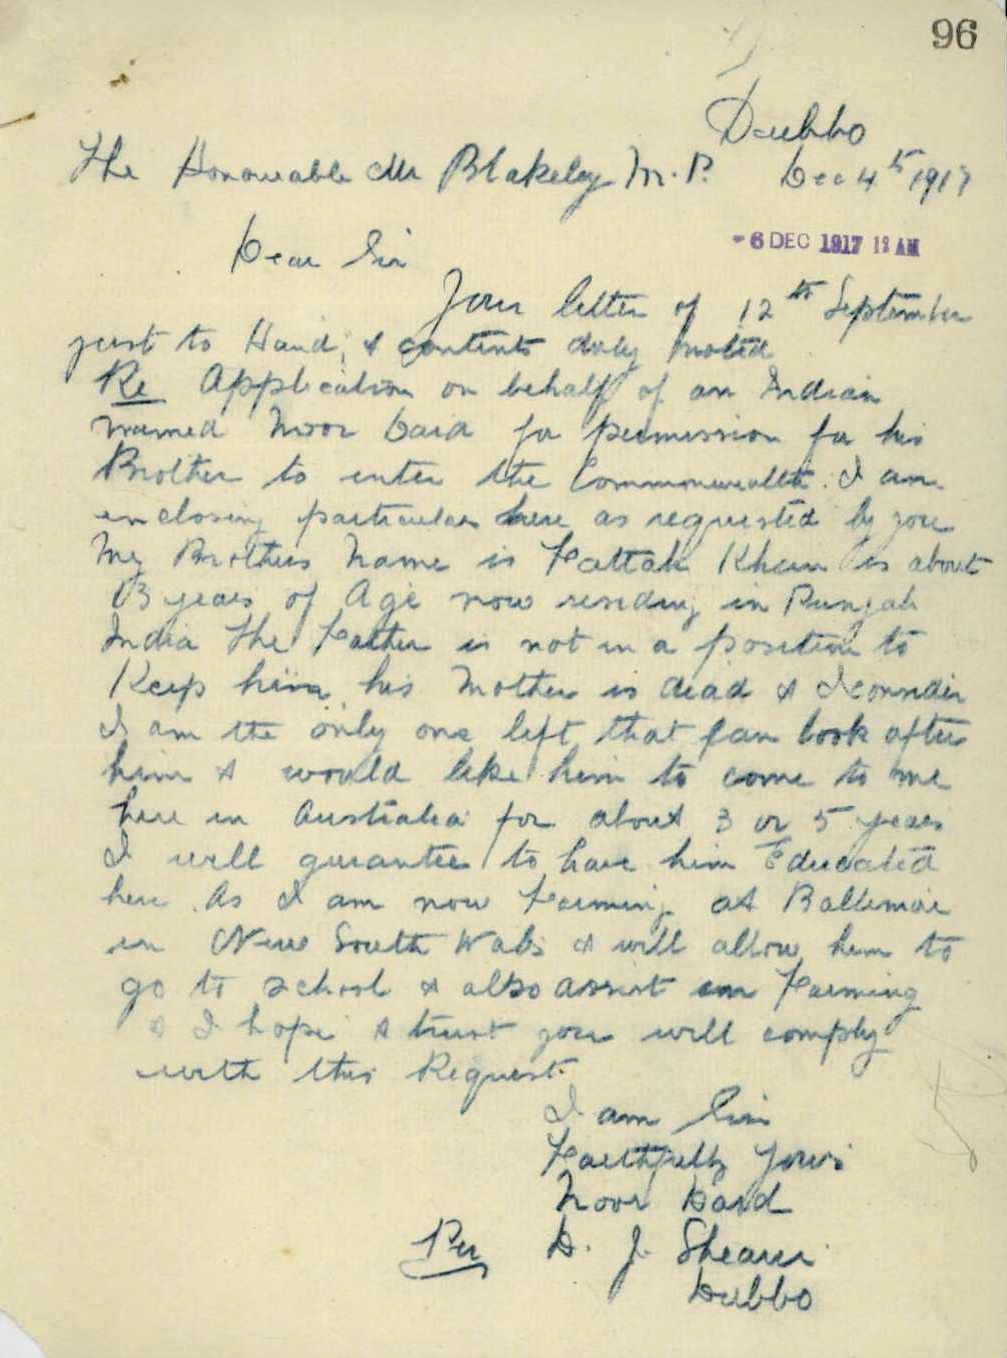 96
Dubbo
The Honourable Mr Blakeley M.P. Dec 4th 1917
- 6 DEC 1917 12 AM
Dear Sir
Your letter of 12th September
just to Hand, & contents duly noted
Re Application on behalf of an Indian
named Noor Daid for permission for his
Brother to enter the Commonwealth. I am
enclosing particulars here as requested by you
My Brothers Name is Fattah Khan is about
13 years of Age now residing in Punjab
India The Father is not in a position to
Keep him, his Mother is dead & I consider
I am the only one left that can look after
him & would like him to come to me
here in Australia for about 3 or 5 years
I will gurantee to have him Educated
here. As I am now Farming at Ballimore
in New South Wales & will allow him to
go to School & also assist in Farming
& I hope & trust you will comply
with this Request.
I am Sir
Faithfully Yours
Noor Daid
Per D. J. Shearer
Dubbo